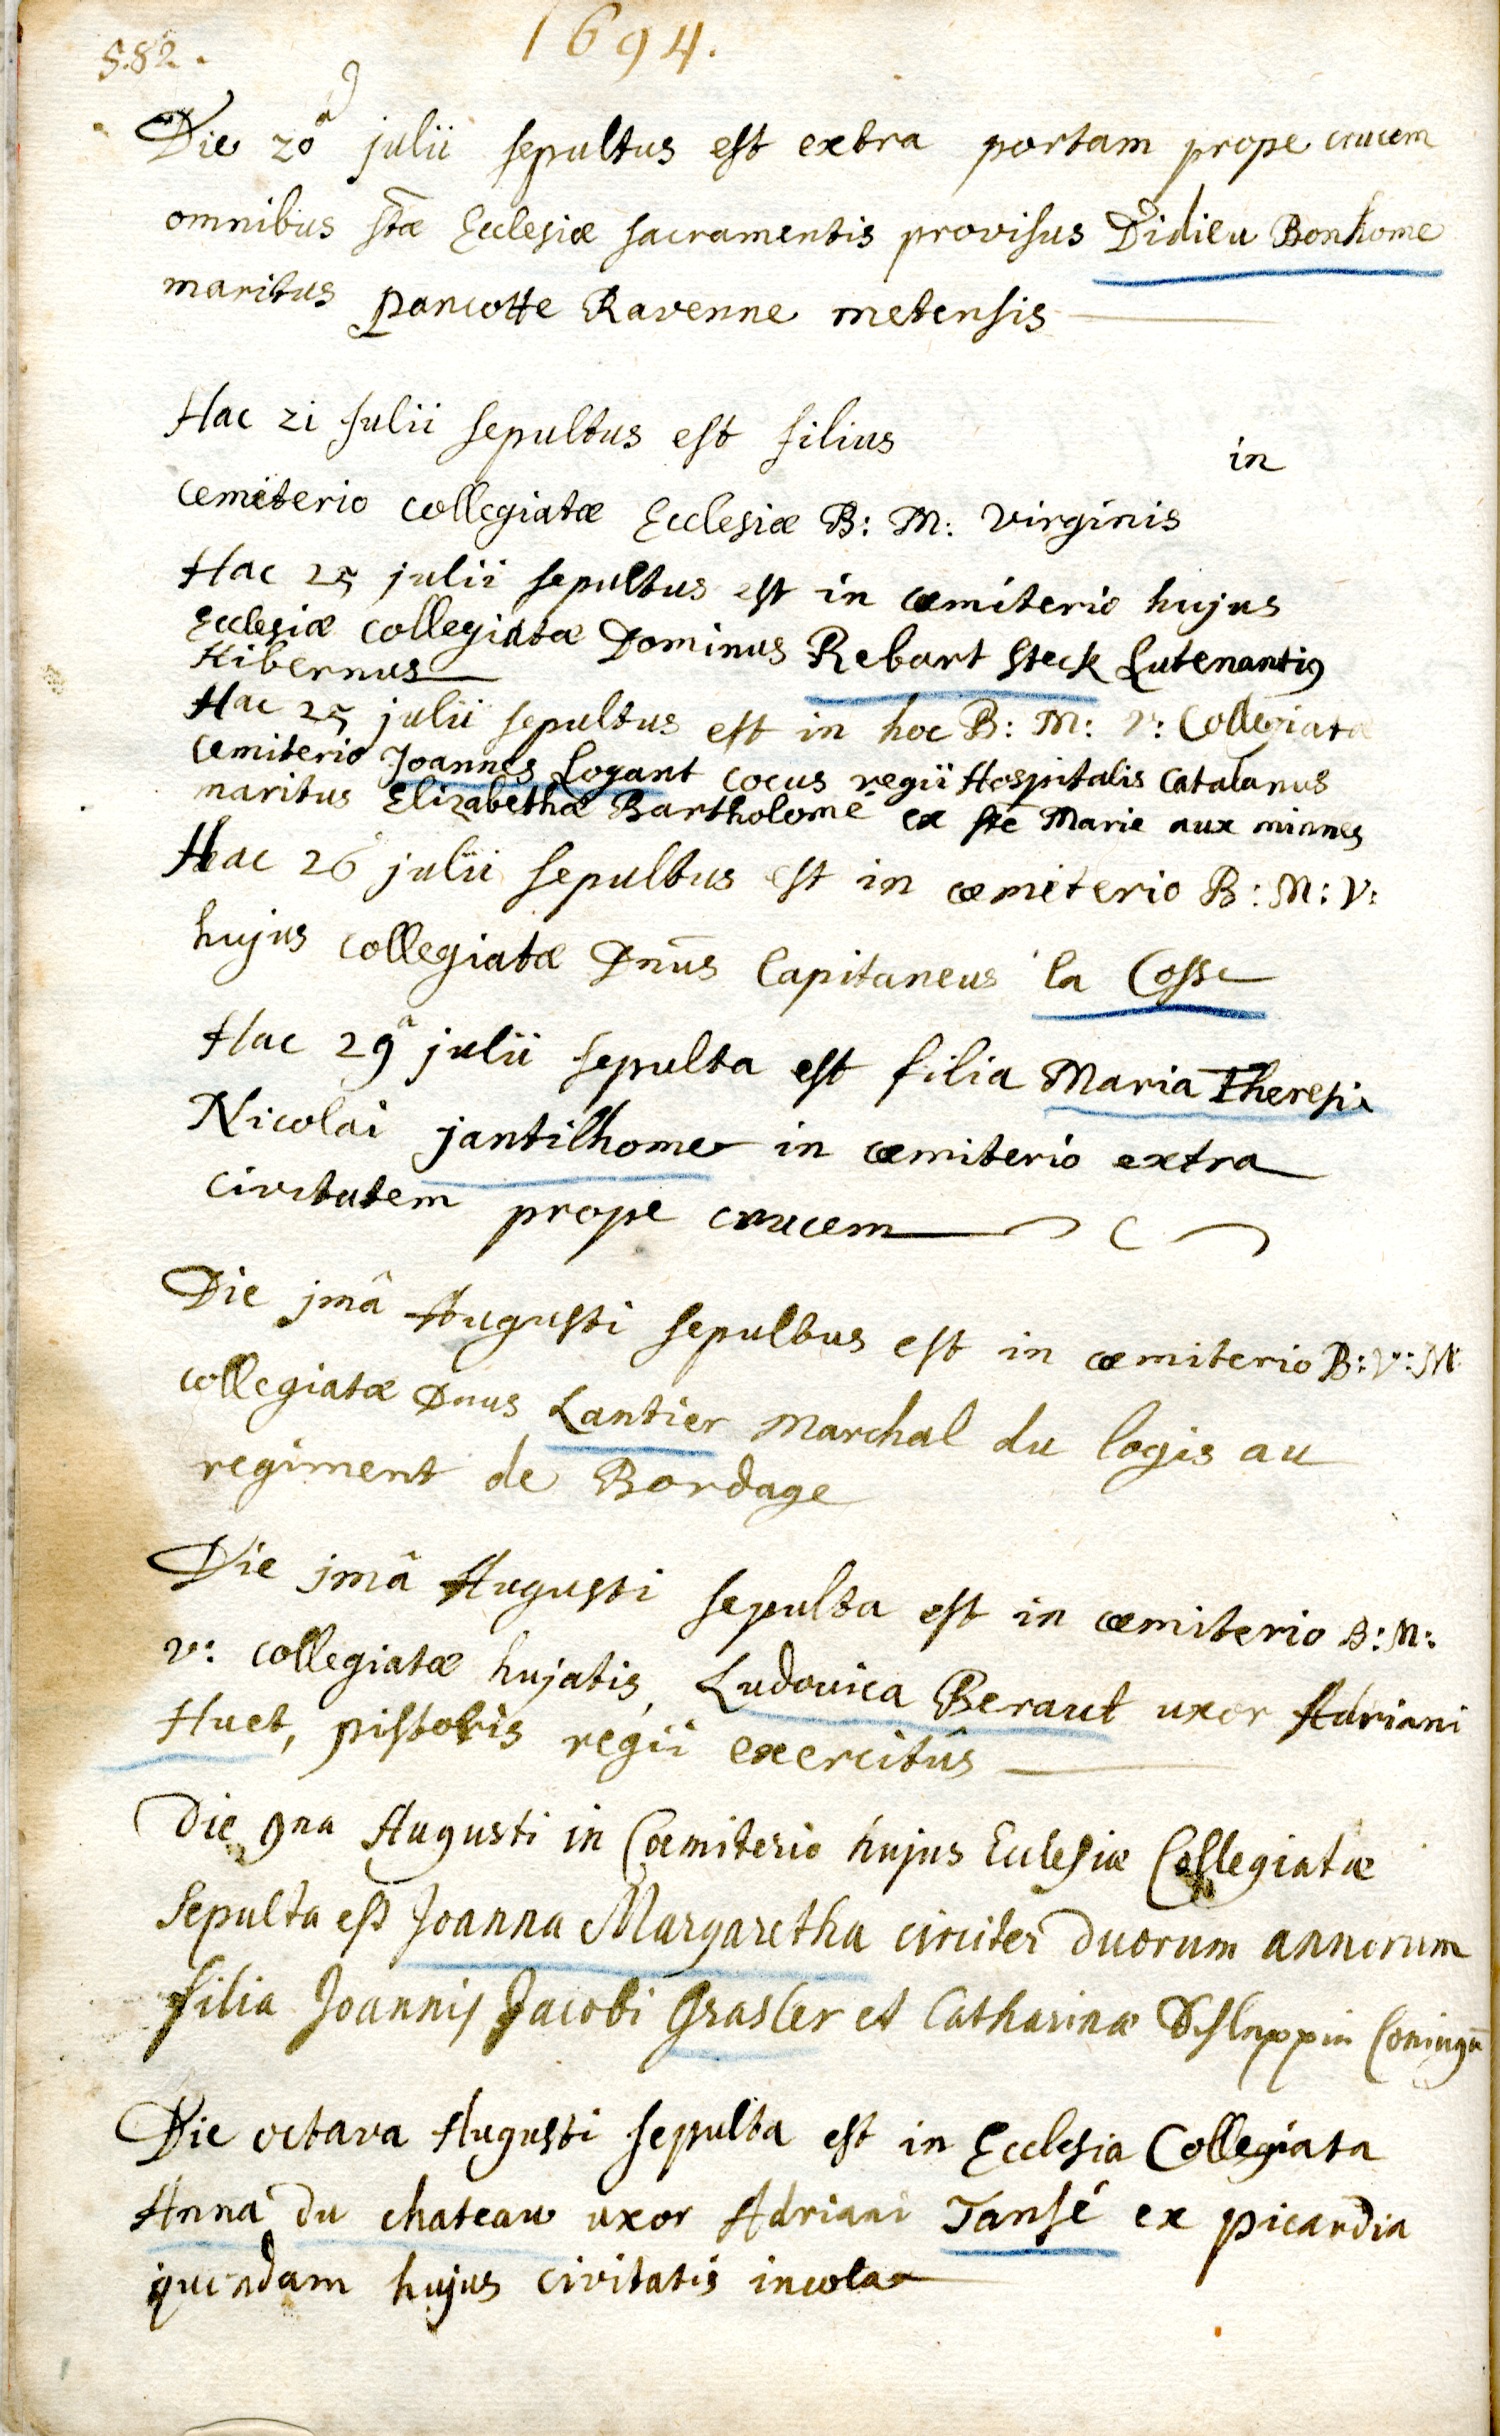 S.82.
1694.
Die 20a julii sepultus est extra portam prope crucem
omnibus stæ Ecclesiæ sacramentis provisus Didieu Bonhome
maritus pancotte Ravenne metensis
Hac 21 Julii sepultus est filius
in
cemeterio collegiatæ Ecclesiæ B: M: virginis
Hac 25 julii sepultus est in cœmiterio hujus
Ecclesiæ collegiatæ Dominus Rebart Steck Lutenantius
Hibernus
Hac 25 julii sepultus est in hoc B: M: v: Collegiatæ
cemiterio Joannes Logant cocus regii Hospitalis Catalanus
maritus Elizabethæ Bartholomé ex ste Marie aux minnes
Hac 26 julii sepultus est in cœmeterio B: M: V:
hujus collegiatæ Dnūs Capitaneus la Cosse
Hac 29a julii sepulta est filia Maria Theresia
Nicolai jantilhome in cœmiterio extra
civitatem prope crucem
Die jmâ Augusti sepultus est in cœmiterio B: V: M:
collegiatæ Dnus Lantier Marchal du logis au
regiment de Bordage
Die jmâ Augusti sepulta est in cœmiterio B: M:
v: collegiatæ hujatis, Ludovica Beraut uxor Adriani
Huet, pistoris regii exercitûs
Die 9na Augusti in Cœmiterio hujus Ecclesiæ Collegiatæ
Sepulta est Joanna Margaretha circiter duorum annorum
filia Joannis Jacobi Grasler et Catharinæ Coniugū
Die octava Augusti sepulta est in Ecclesia Collegiata
Anna du chateau uxor Adriani Tansé ex picardia
quondam hujus civitatis incola